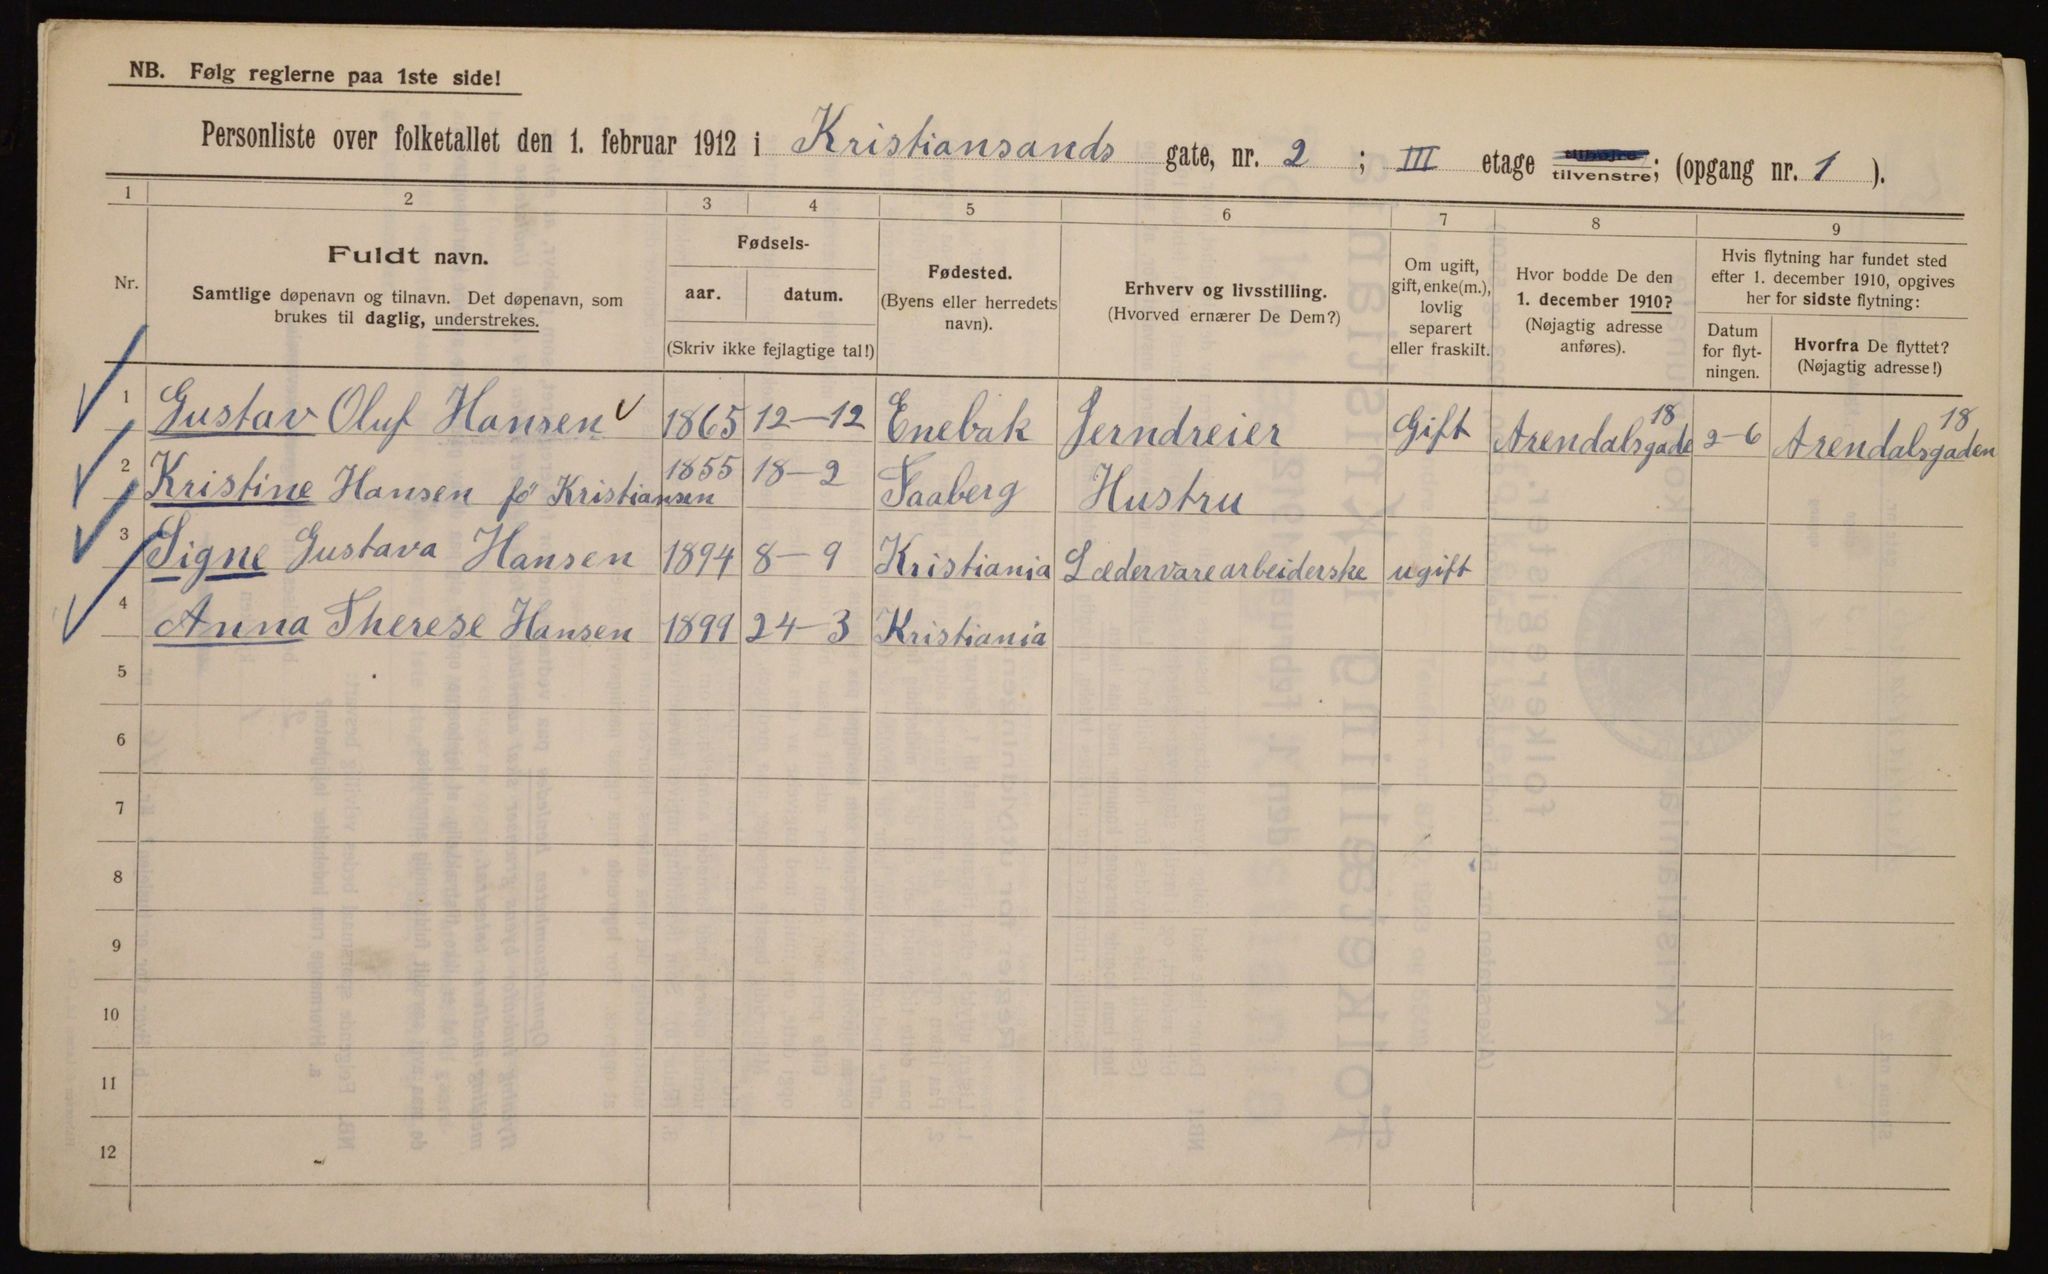 NB. Følg reglerne paa 1ste side!
Personliste over folketallet den 1. februar 1912 i Kristiansands gate, nr. 2 ; III etage tilhøjre tilvenstre; (opgang nr. 1 ).
1 2 3 4 5 6 7 8 9
Nr.
Fuldt navn.
Samtlige døpenavn og tilnavn. Det døpenavn, som
brukes til daglig, understrekes.
Fødsels-
aar. datum.
(Skriv ikke fejlagtige tal!)
Fødested.
(Byens eller herredets
navn).
Erhverv og livsstilling.
(Hvorved ernærer De Dem?)
Om ugift,
gift, enke(m.),
lovlig
separert
eller fraskilt.
Hvor bodde De den
1. december 1910?
(Nøjagtig adresse
anføres).
Hvis flytning har fundet sted
efter 1. december 1910, opgives
her for sidste flytning:
Datum
for flyt-
ningen.
Hvorfra De flyttet?
(Nøjagtig adresse!)
1 Gustav Oluf Hansen 1865 12-12 Enebak Jerndreier Gift Arendalsgade 18 2-6 Arendalsgaden 18
2 Kristine Hansen fö Kristiansen 1855 18-2 Faaberg Hustru
3 Signe Gustava Hansen 1894 8-9 Kristiania Lædervarearbeiderske ugift
4 Anna Therese Hansen 1899 24-3 Kristiania
5
6
7
8
9
10
11
12